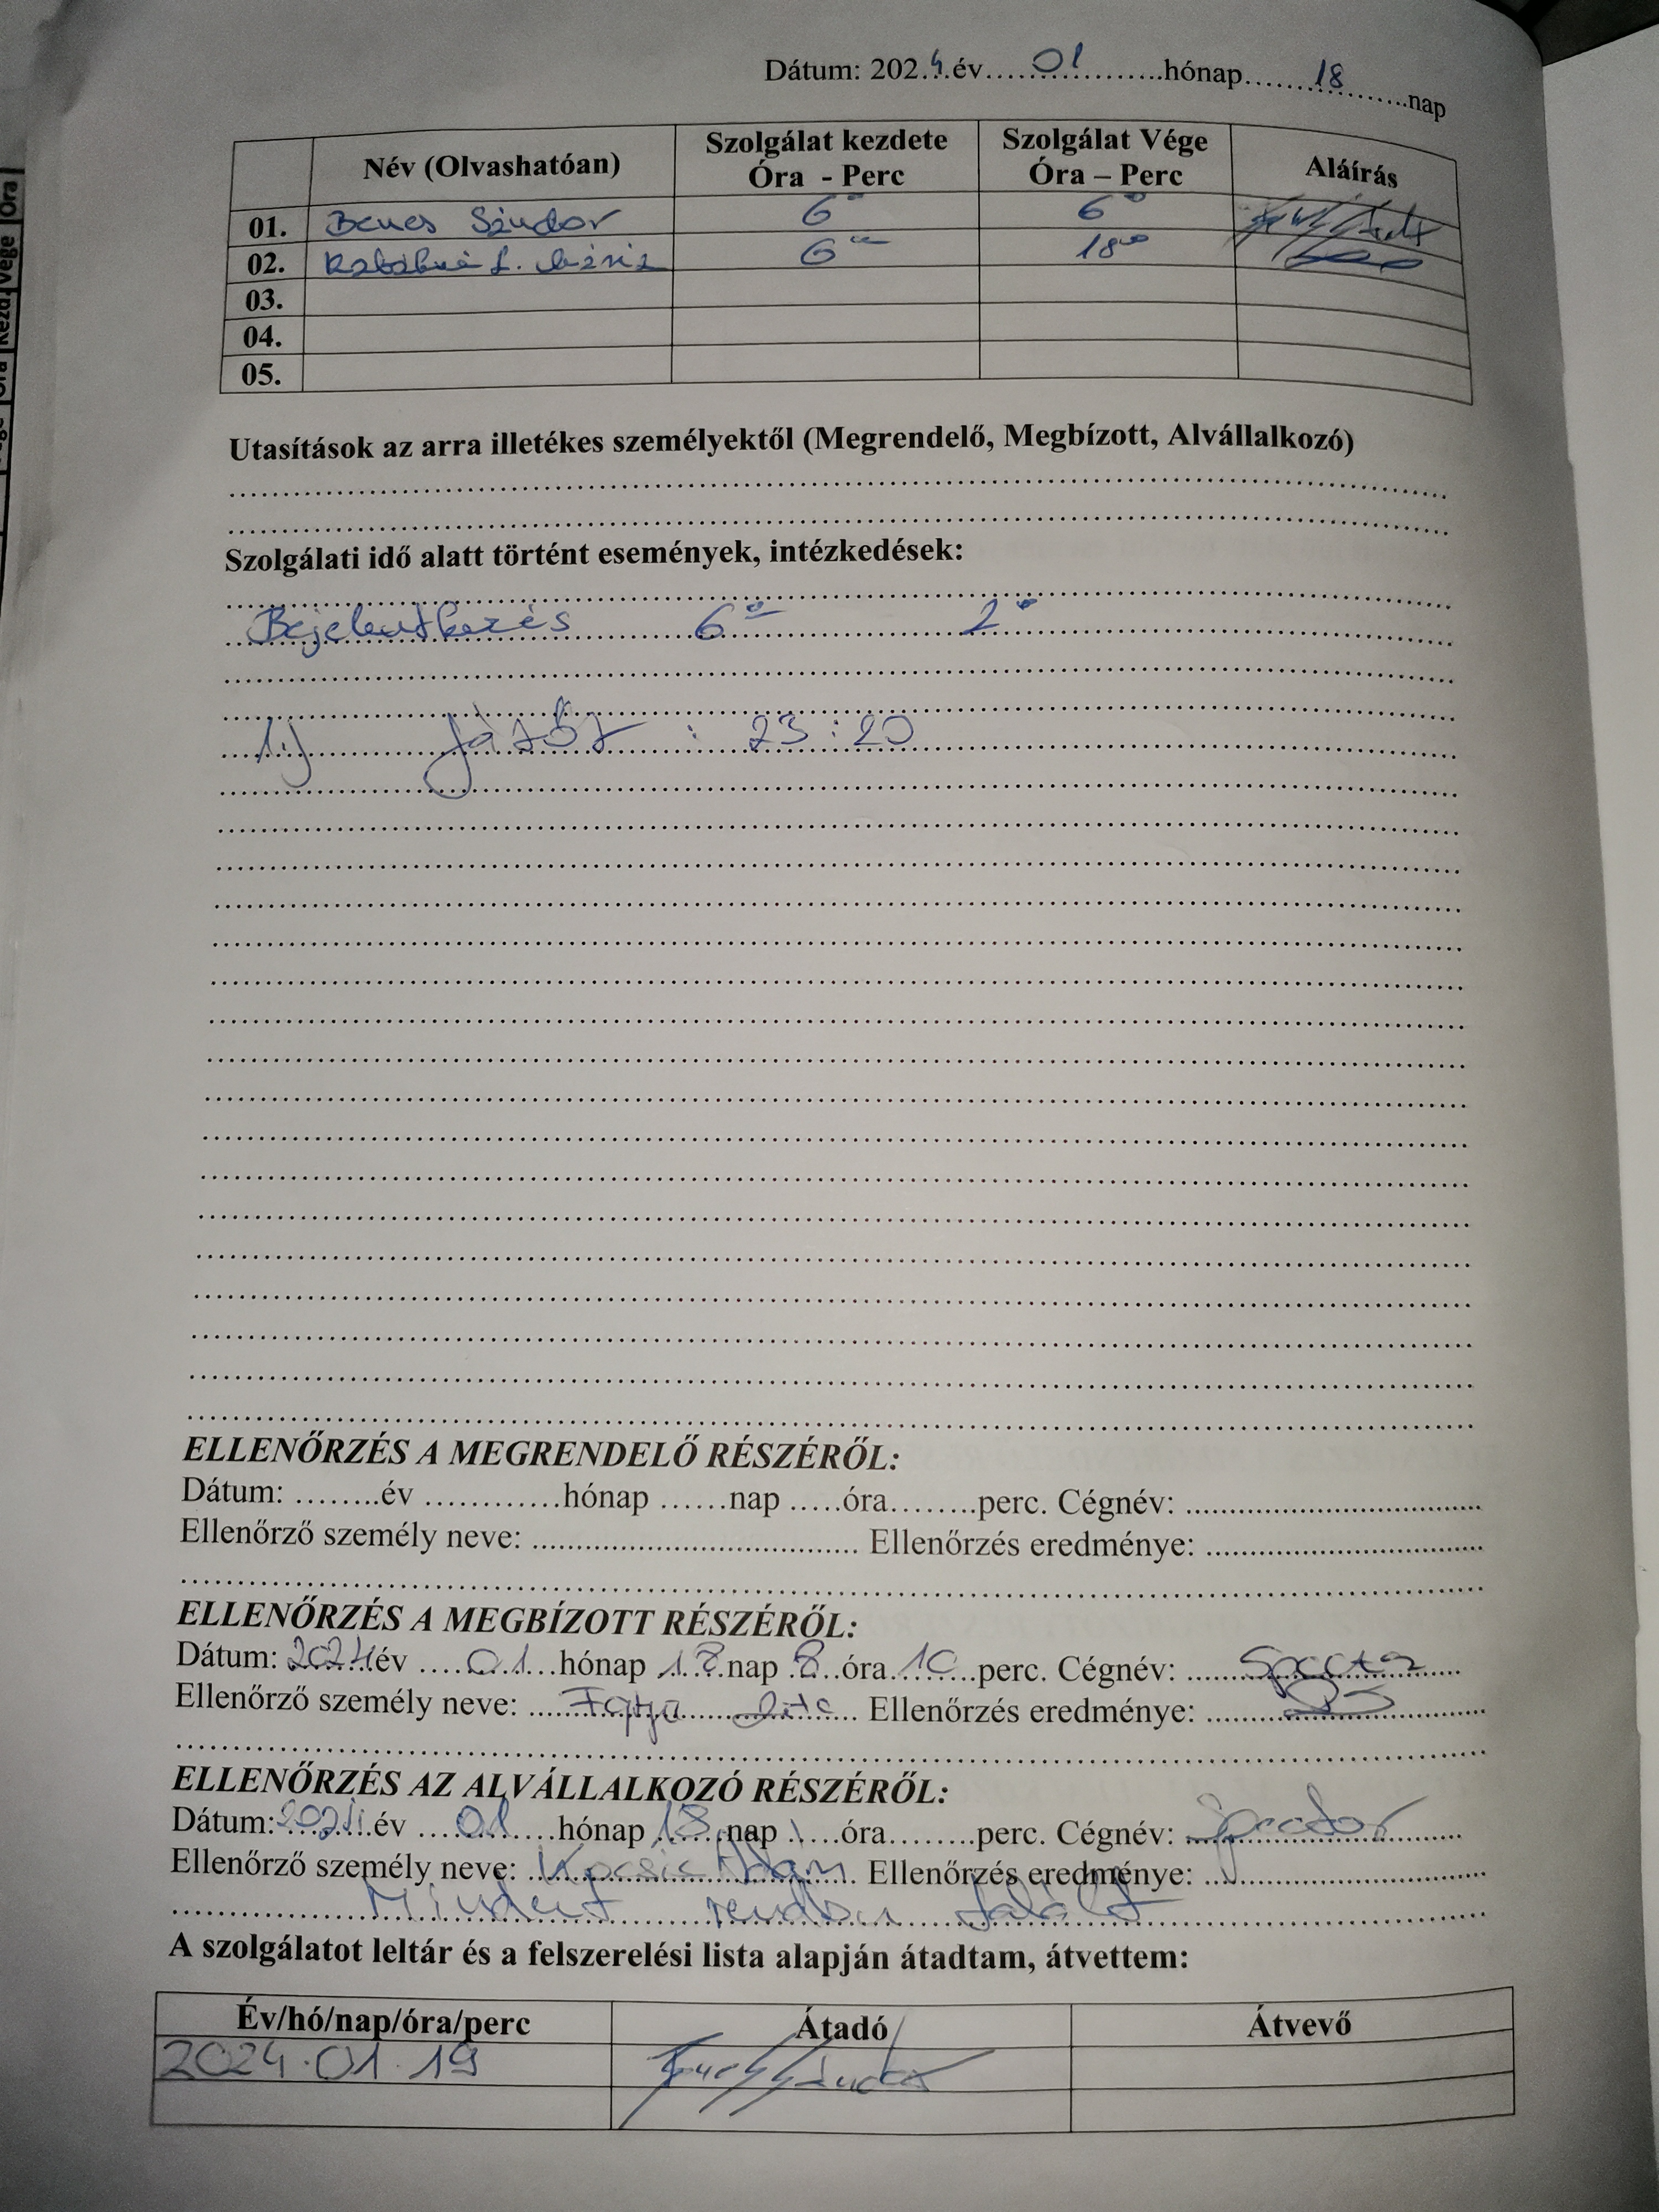 Dátum: 2024 év 01 hónap 18 nap
Név (Olvashatóan) Szolgálat kezdete Óra - Perc Szolgálat Vége Óra – Perc Aláírás
01. Benes Sándor 6 6
02. 6 18
03.
04.
05.
Utasítások az arra illetékes személyektől (Megrendelő, Megbízott, Alvállalkozó)
Szolgálati idő alatt történt események, intézkedések:
Bejelentkezés 6 2
Járőr : 23:20
ELLENŐRZÉS A MEGRENDELŐ RÉSZÉRŐL:
Dátum: ........év ............hónap ......nap .....óra........perc. Cégnév: ..................................
Ellenőrző személy neve: ..................................... Ellenőrzés eredménye: ................................
ELLENŐRZÉS A MEGBÍZOTT RÉSZÉRŐL:
Dátum: 2024 év 01 hónap 18 nap 8 óra 10 perc. Cégnév:
Ellenőrző személy neve: Ellenőrzés eredménye:
ELLENŐRZÉS AZ ALVÁLLALKOZÓ RÉSZÉRŐL:
Dátum: 2024 év 01 hónap 18 nap óra perc. Cégnév:
Ellenőrző személy neve: Kocsis Ádám Ellenőrzés eredménye:
Mindent rendbn talált
A szolgálatot leltár és a felszerelési lista alapján átadtam, átvettem:
Év/hó/nap/óra/perc Átadó Átvevő
2024.01.19
Óra
Vége
Kezd.